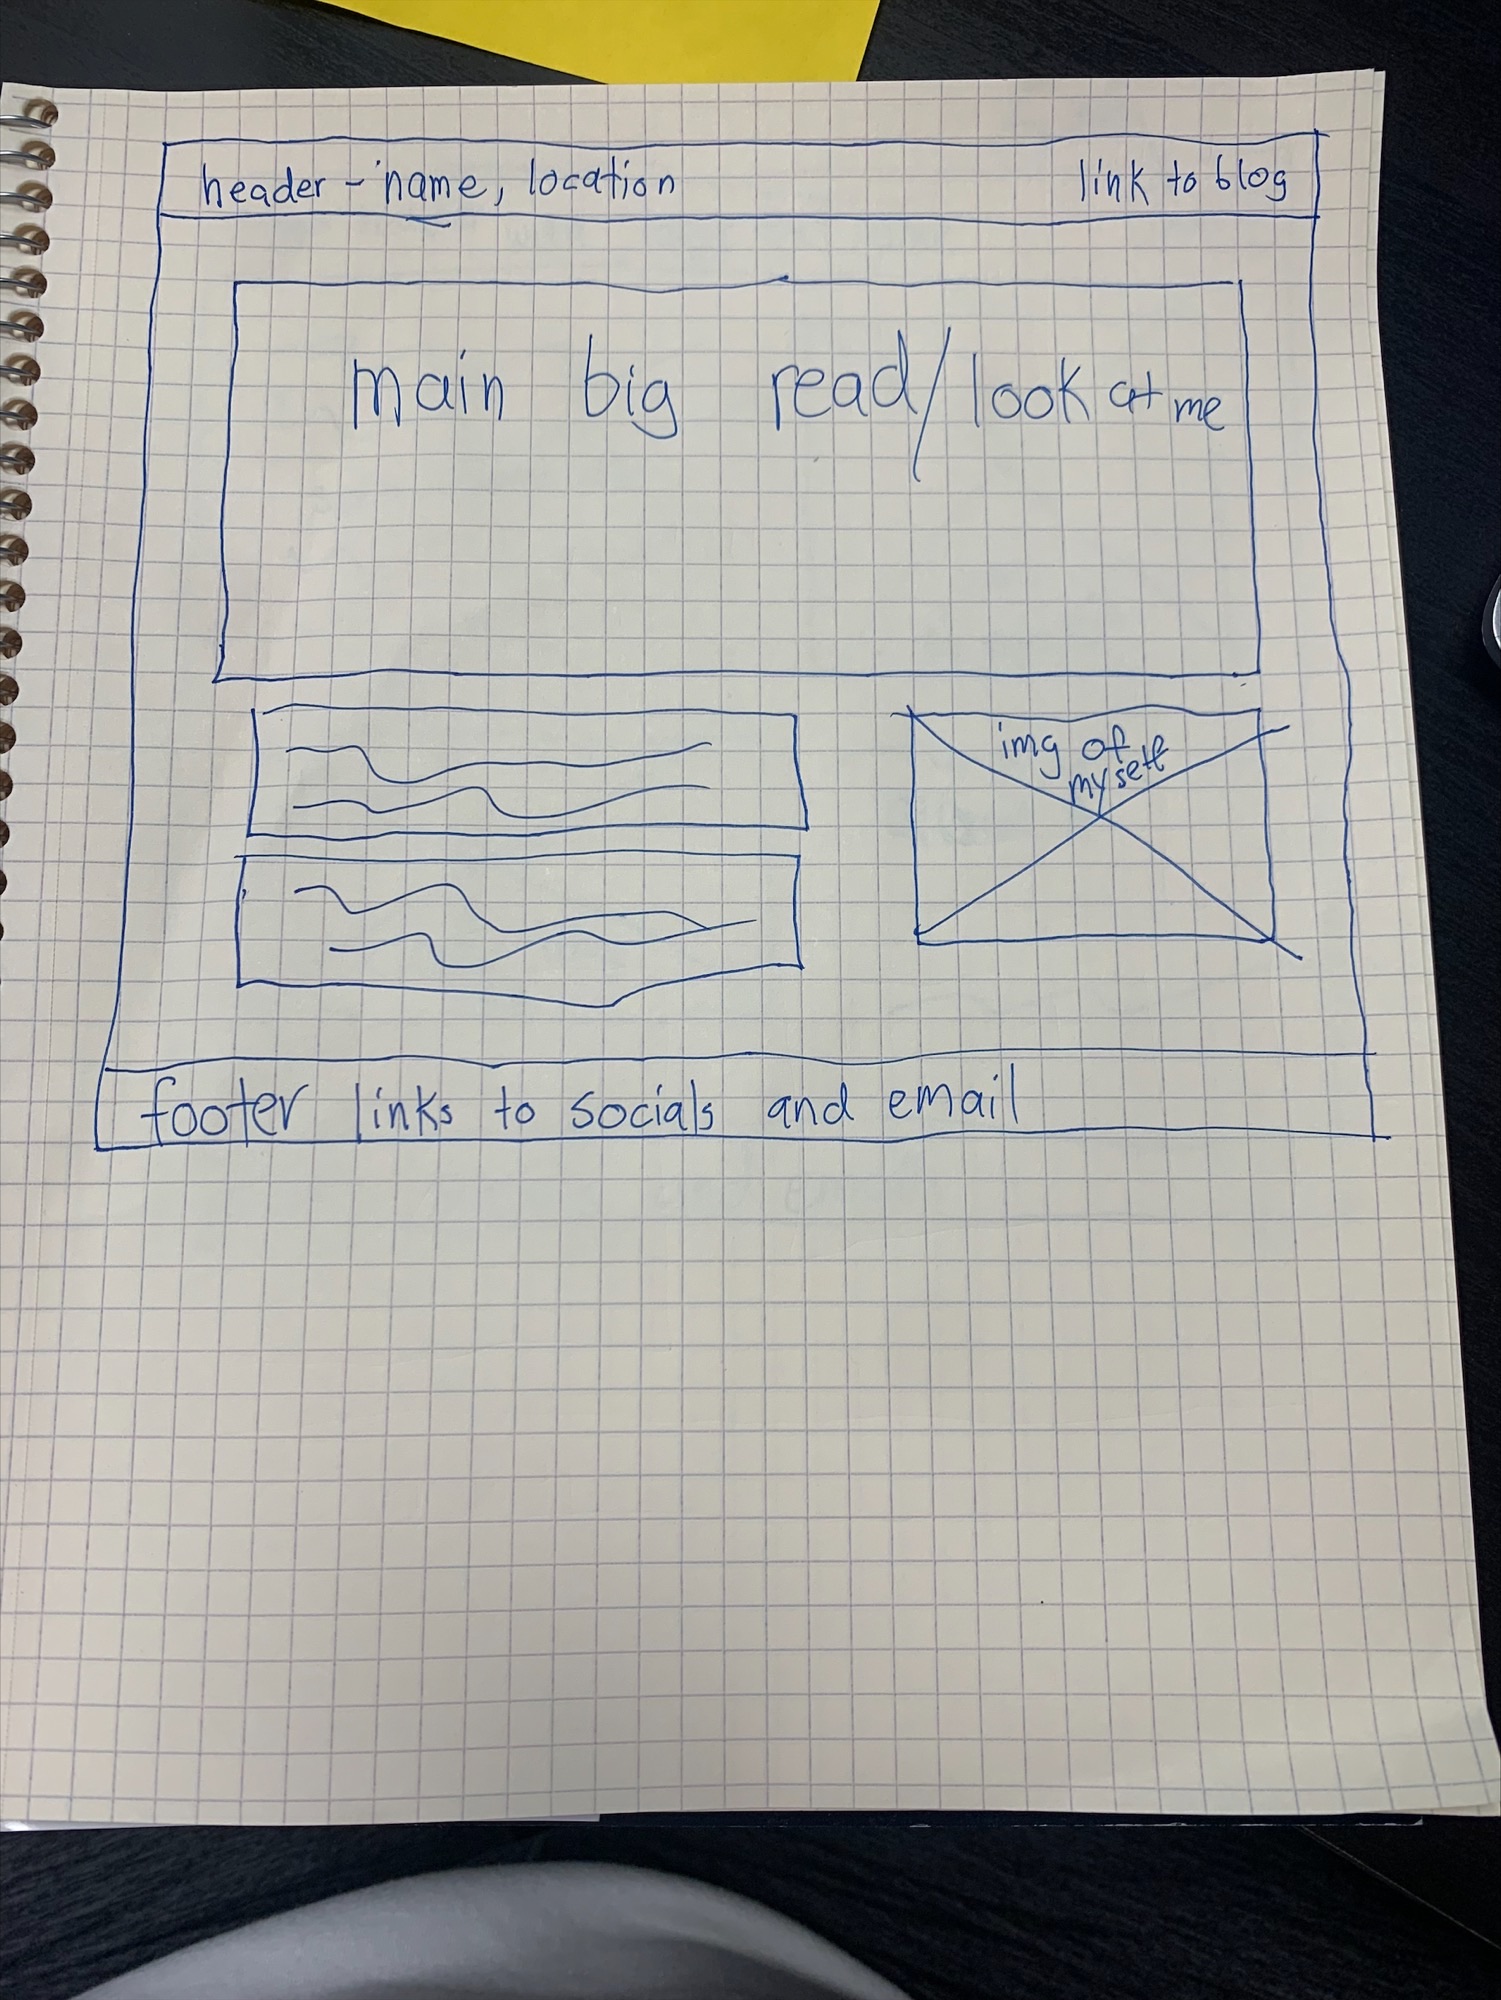 header - name, location
link to blog
main big read/look at me
img of
myself
footer links to socials and email